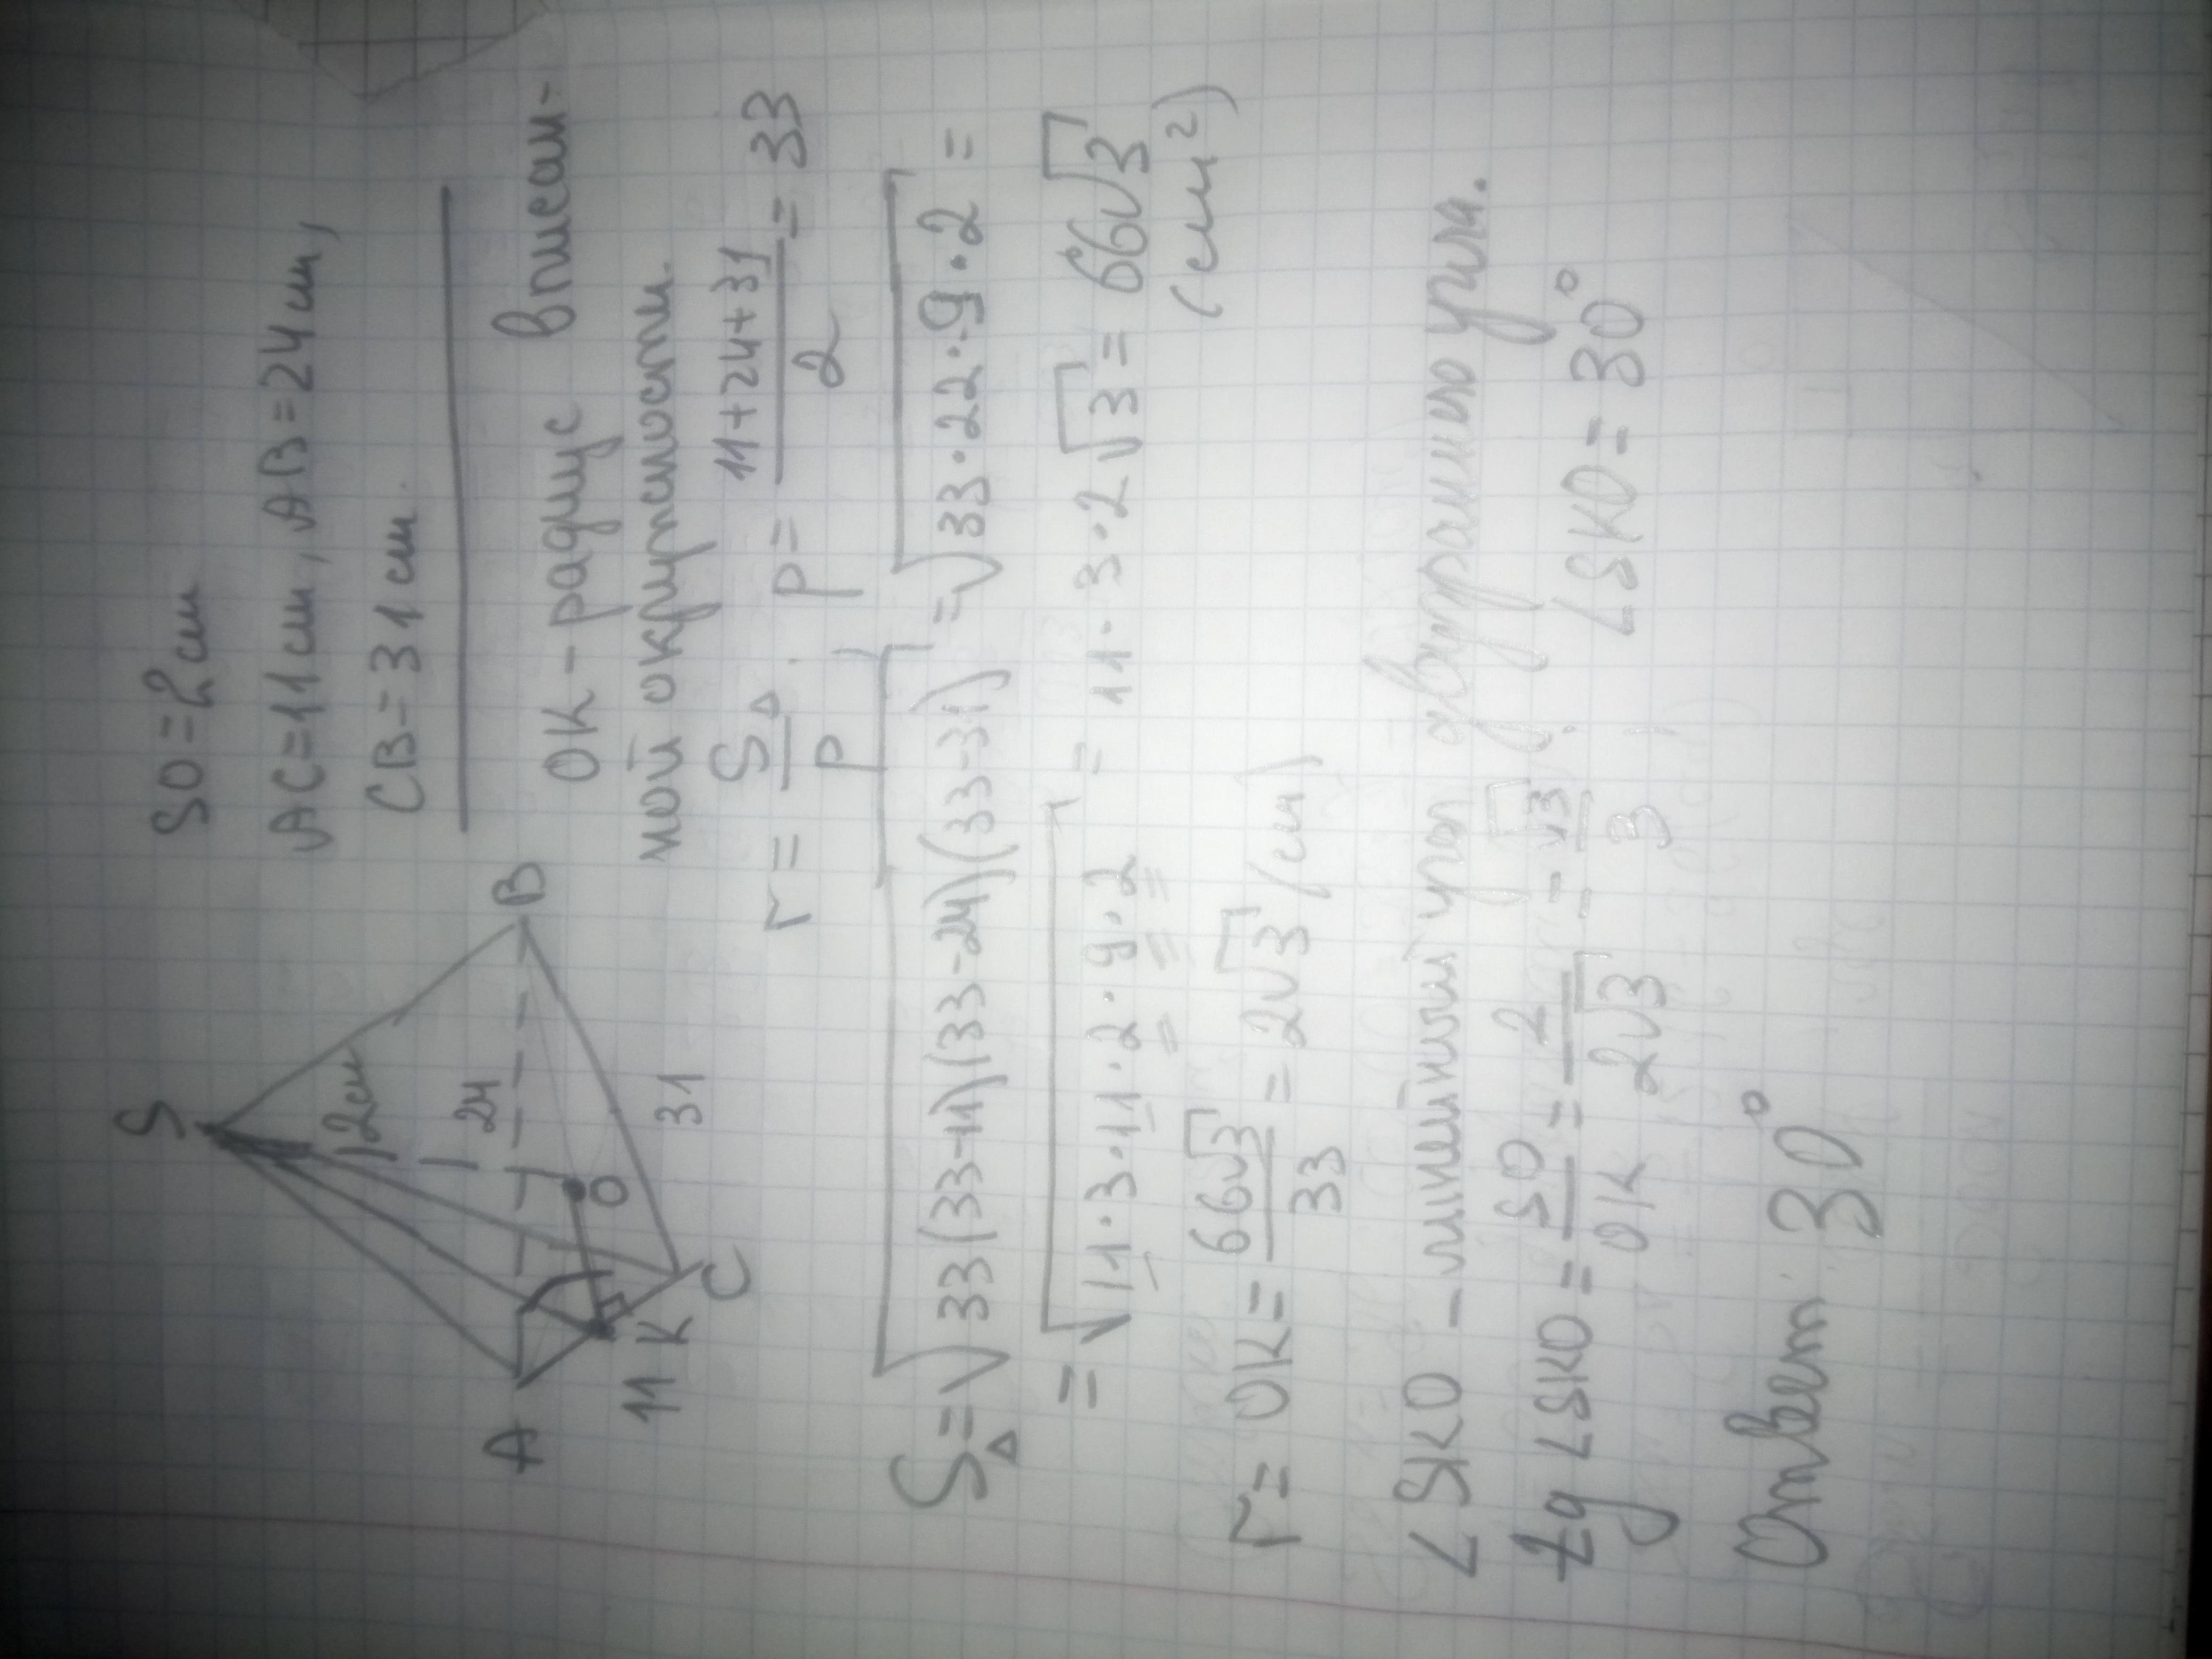 S
12см
24
A
B
O
31
11 K
C
SO=2см
AC=11см, AB=24см,
CB=31см.
OK - радиус вписан-
ной окружности.
r = S△/p. p = (11+24+31)/2 = 33
S△=√(33(33-11)(33-24)(33-31)) = √(33·22·9·2) =
= √(11·3·11·2·9·2) = 11·3·2√3 = 66√3
(см²)
r = OK = 66√3/33 = 2√3 (см)
∠SKO - линейный угол двугранного угла.
tg ∠SKO = SO/OK = 2/(2√3) = √3/3; ∠SKO = 30°
Ответ: 30°